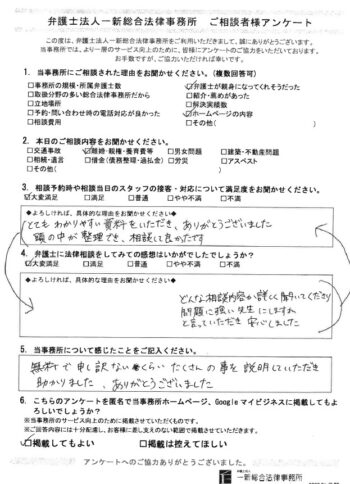 弁護士法人一新総合法律事務所　ご相談者様アンケート
この度は、弁護士法人一新総合法律事務所をご利用いただきまして、誠にありがとうございます。
当事務所では、より一層のサービス向上のために、皆様にアンケートのご協力をいただいております。
お手数ですが、ご協力いただければ幸いです。
1. 当事務所にご相談された理由をお聞かせください。(複数回答可)
□事務所の規模・所属弁護士数　☑弁護士が親身になってくれそうだった
□取扱分野の多い総合法律事務所だから　□紹介・薦めがあった
□立地場所　□解決実績数
□予約・問い合わせ時の電話対応が良かった　☑ホームページの内容
□相談費用　□その他(　)
2. 本日のご相談内容をお聞かせください。
□交通事故　☑離婚・親権・養育費等　□男女問題　□建築・不動産問題
□相続・遺言　□借金(債務整理・過払金)　□労災　□アスベスト
□その他(　)
3. 相談予約時や相談当日のスタッフの接客・対応について満足度をお聞かせください。
☑大変満足　□満足　□普通　□やや不満　□不満
◆よろしければ、具体的な理由をお聞かせください◆
とてもわかりやすい資料をいただき、ありがとうございました
頭の中が整理でき、相談して良かったです
4. 弁護士に法律相談をしてみての感想はいかがでしたでしょうか?
☑大変満足　□満足　□普通　□やや不満　□不満
◆よろしければ、具体的な理由をお聞かせください◆
どんな相談内容か詳しく聞いてくださり
問題に強い先生にしますね
と言っていただき 安心しました
5. 当事務所について感じたことをご記入ください。
無料で申し訳ないくらい たくさんの事を説明していただき
助かりました、ありがとうございました
6. こちらのアンケートを匿名で当事務所ホームページ、Googleマイビジネスに掲載してもよ
ろしいでしょうか?
※当事務所のサービス向上のために掲載させていただくものです。
※ご回答内容には十分配慮し、お客様に差し支えのない範囲で掲載させていただきます。
☑掲載してもよい　□掲載は控えてほしい
アンケートへのご協力ありがとうございました。
弁護士法人
一新総合法律事務所